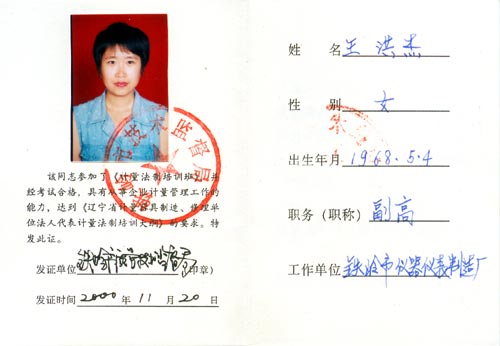 该同志参加了《计量法制培训班》并
经考试合格，具有从事企业计量管理工作的
能力，达到《辽宁省计量器具制造、修理单
位法人代表计量法制培训大纲》的要求。特
发此证。
发证单位 铁岭市 技术监督局（印章）
发证时间 2000 年 11 月 20 日
技术监督局
姓 名 王洪杰
性 别 女
出生年月 1968.5.4
职务（职称） 副高
工作单位 铁岭市仪器仪表制造厂